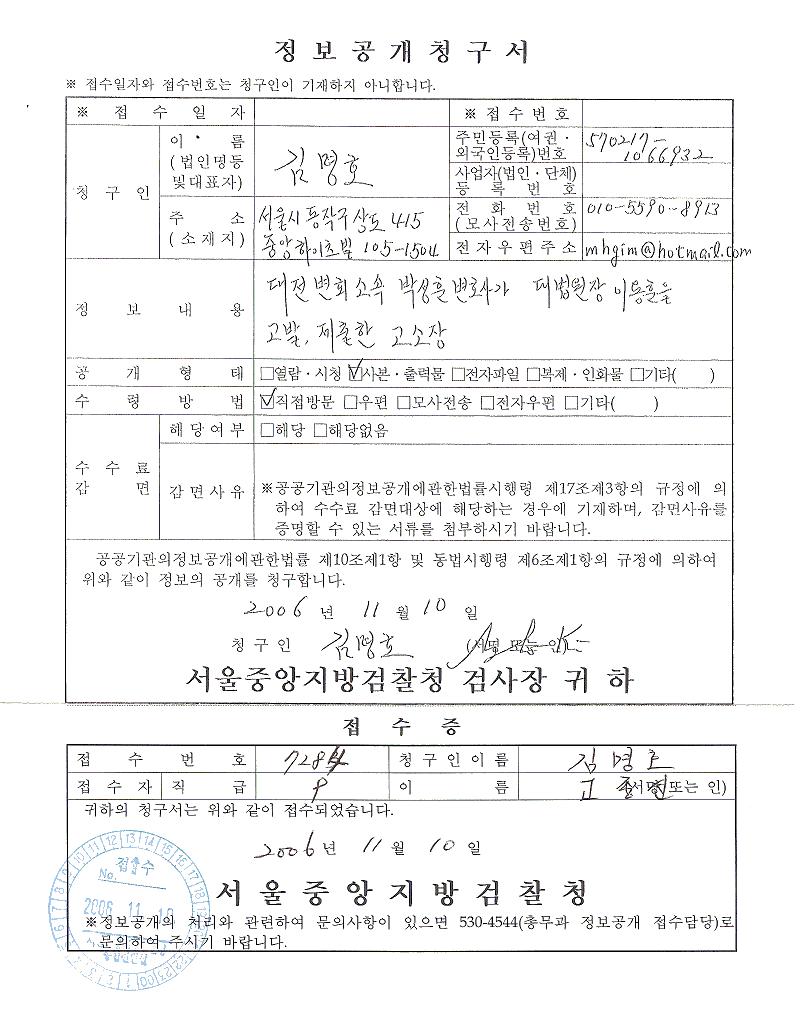 정 보 공 개 청 구 서
※ 접수일자와 접수번호는 청구인이 기재하지 아니합니다.
※ 접 수 일 자
※ 접 수 번 호
청 구 인
이 름
(법인명등
및대표자)
김명호
주민등록(여권ㆍ
외국인등록)번호
570217-
1066932
사업자(법인ㆍ단체)
등 록 번 호
주 소
(소재지)
서울시 동작구 상도 415
중앙하이츠빌 105-1504
전 화 번 호
(모사전송번호)
010-5590-8913
전자우편주소
mhgim@hotmail.com
정 보 내 용
대전변회소속 박성훈변호사가 대법원장 이용훈을
고발, 제출한 고소장
공 개 형 태
□열람ㆍ시청 ☑사본ㆍ출력물 □전자파일 □복제ㆍ인화물 □기타( )
수 령 방 법
☑직접방문 □우편 □모사전송 □전자우편 □기타( )
수 수 료
감 면
해당여부
□해당 □해당없음
감면사유
※공공기관의정보공개에관한법률시행령 제17조제3항의 규정에 의
하여 수수료 감면대상에 해당하는 경우에 기재하며, 감면사유를
증명할 수 있는 서류를 첨부하시기 바랍니다.
공공기관의정보공개에관한법률 제10조제1항 및 동법시행령 제6조제1항의 규정에 의하여
위와 같이 정보의 공개를 청구합니다.
2006 년 11 월 10 일
청 구 인 김명호 (서명 또는 인)
서울중앙지방검찰청 검사장 귀 하
접 수 증
접 수 번 호
7284
청구인이름
김명호
접 수 자
직 급
9
이 름
(서명 또는 인)
귀하의 청구서는 위와 같이 접수되었습니다.
2006 년 11 월 10 일
서 울 중 앙 지 방 검 찰 청
※정보공개의 처리와 관련하여 문의사항이 있으면 530-4544(총무과 정보공개 접수담당)로
문의하여 주시기 바랍니다.
접 수
No.
2006. 11. 10